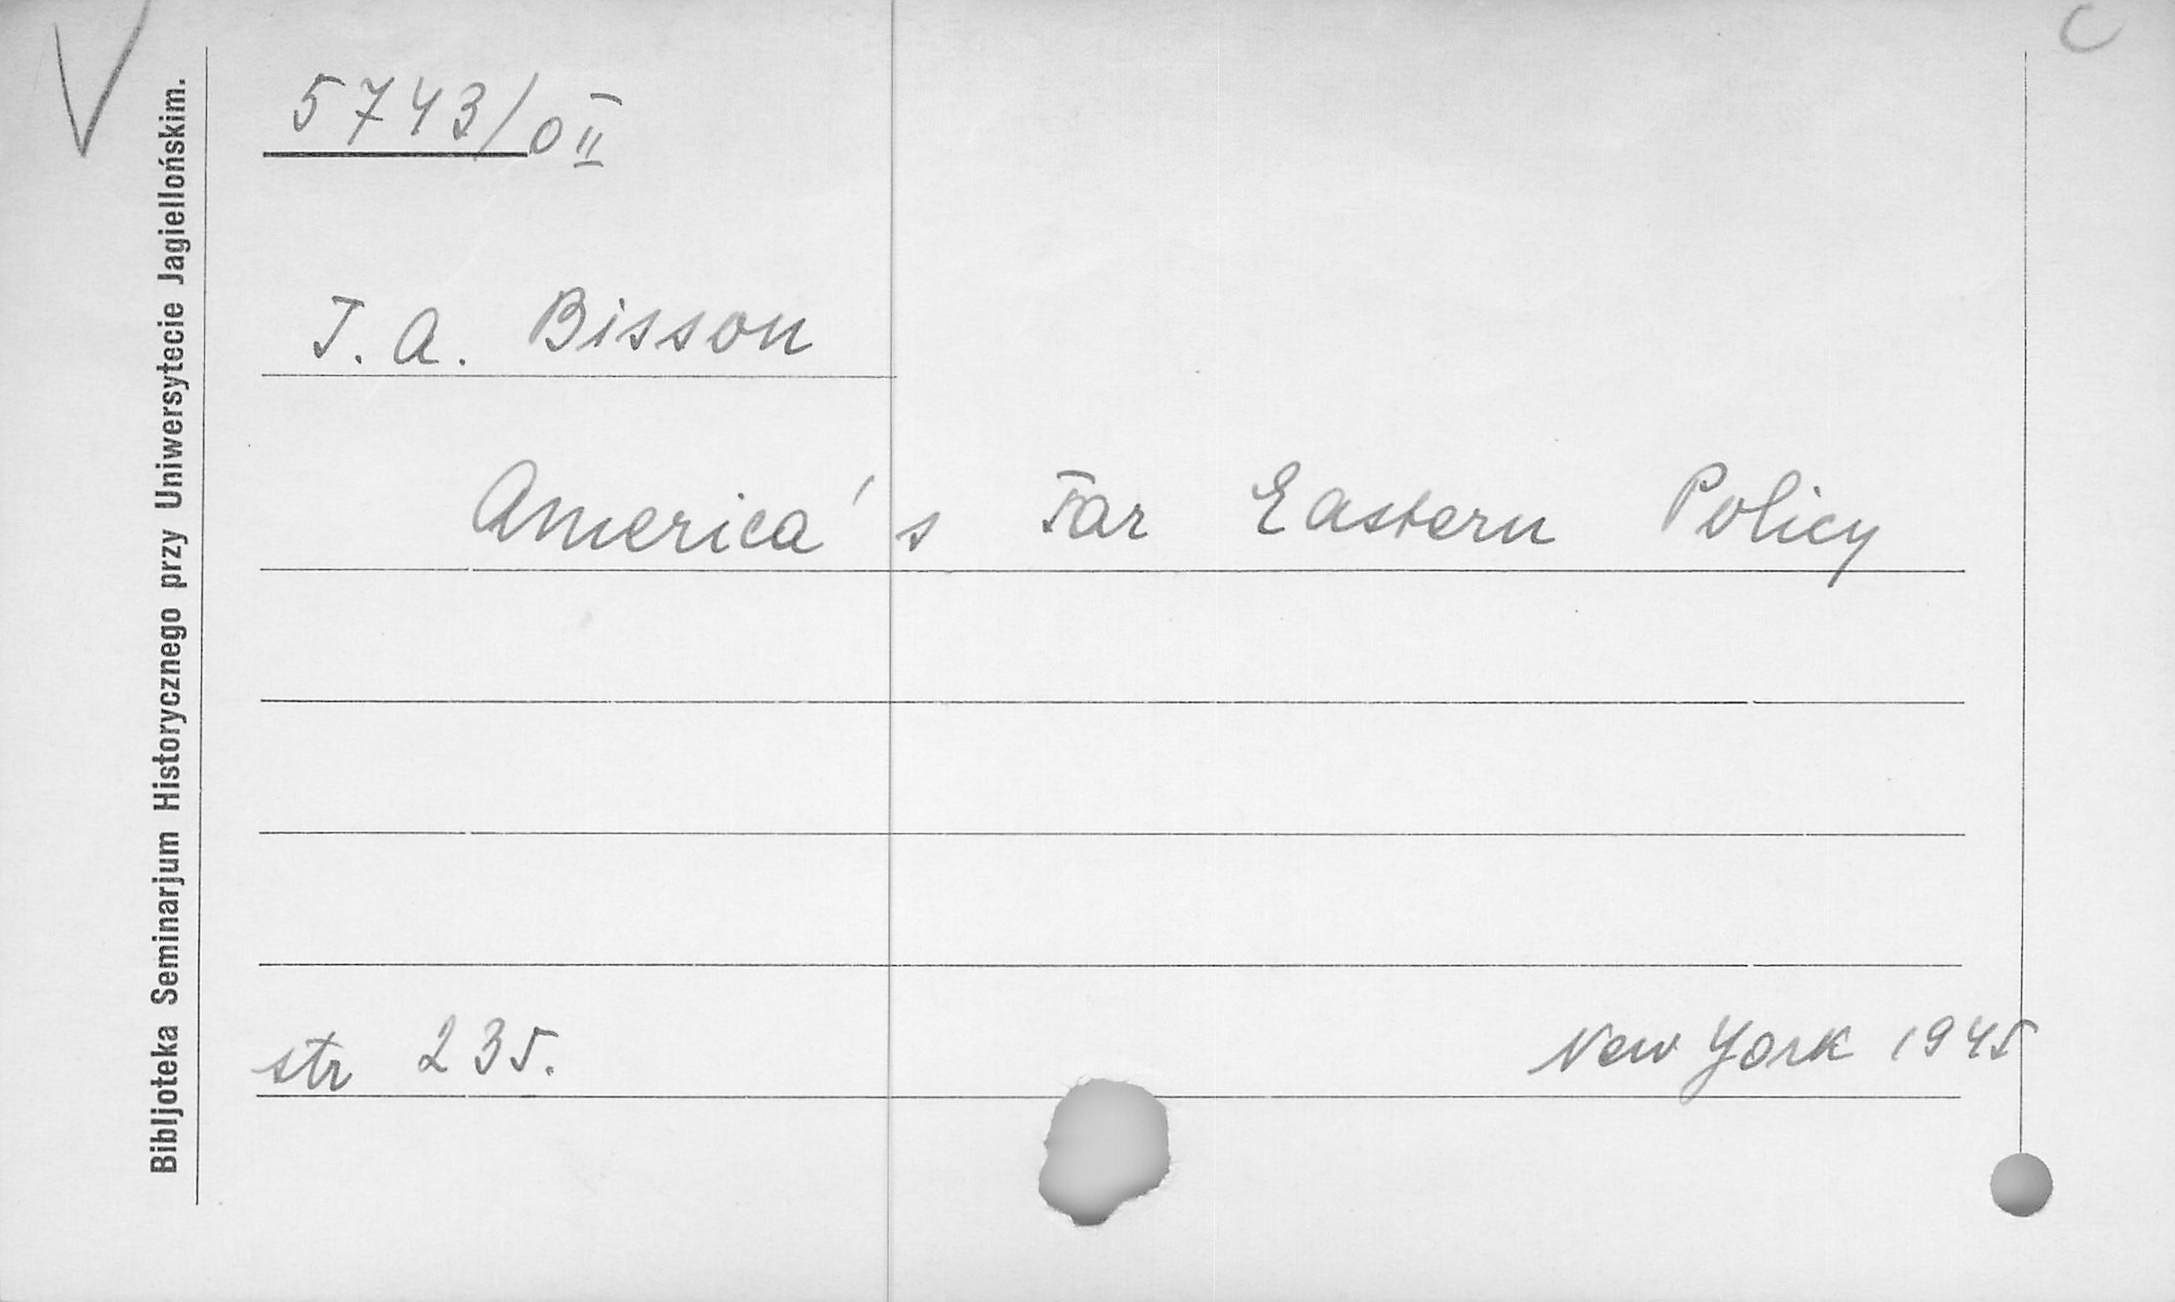 5743/0 II
T. A. Bisson
America's Far Eastern Policy
str 235.
New York 1945
Bibljoteka Seminarjum Historycznego przy Uniwersytecie Jagiellońskim.